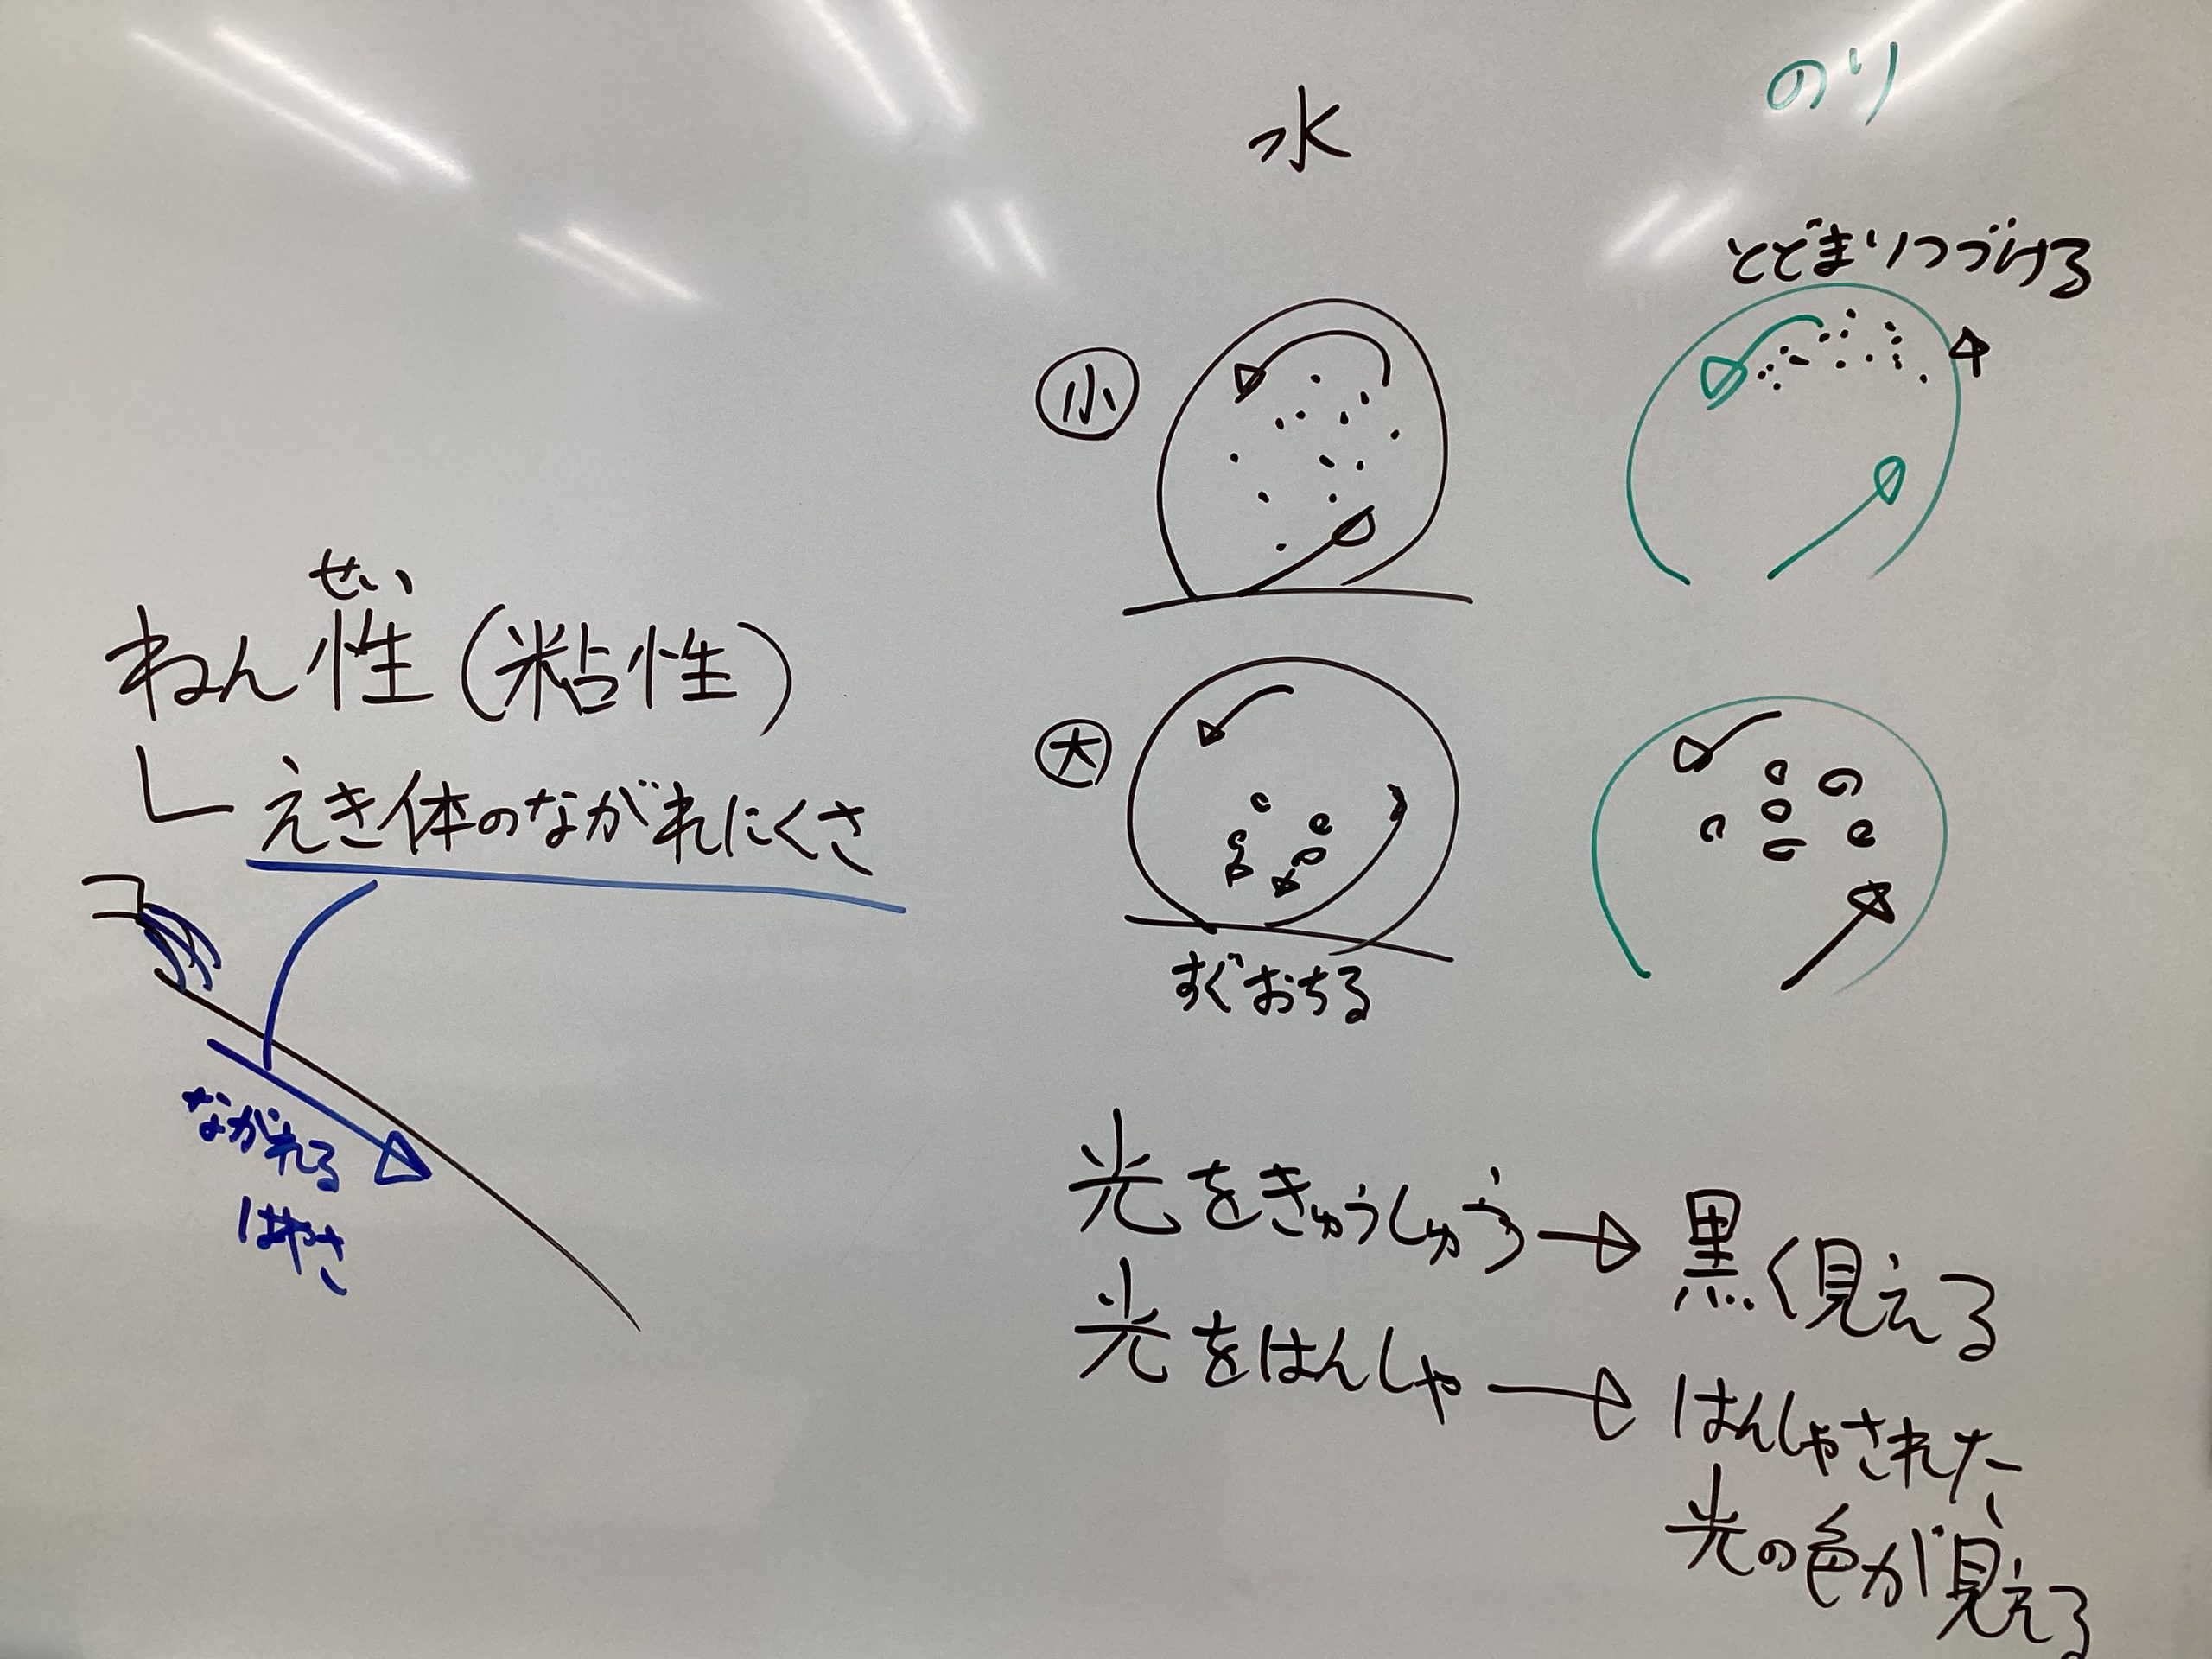 せい
ねん性(粘性)
えき体のながれにくさ
ながれる
はやさ
水
のり
とどまりつづける
小
大
すぐおちる
光をきゅうしゅう→黒く見える
光をはんしゃ→はんしゃされた
光の色が見える